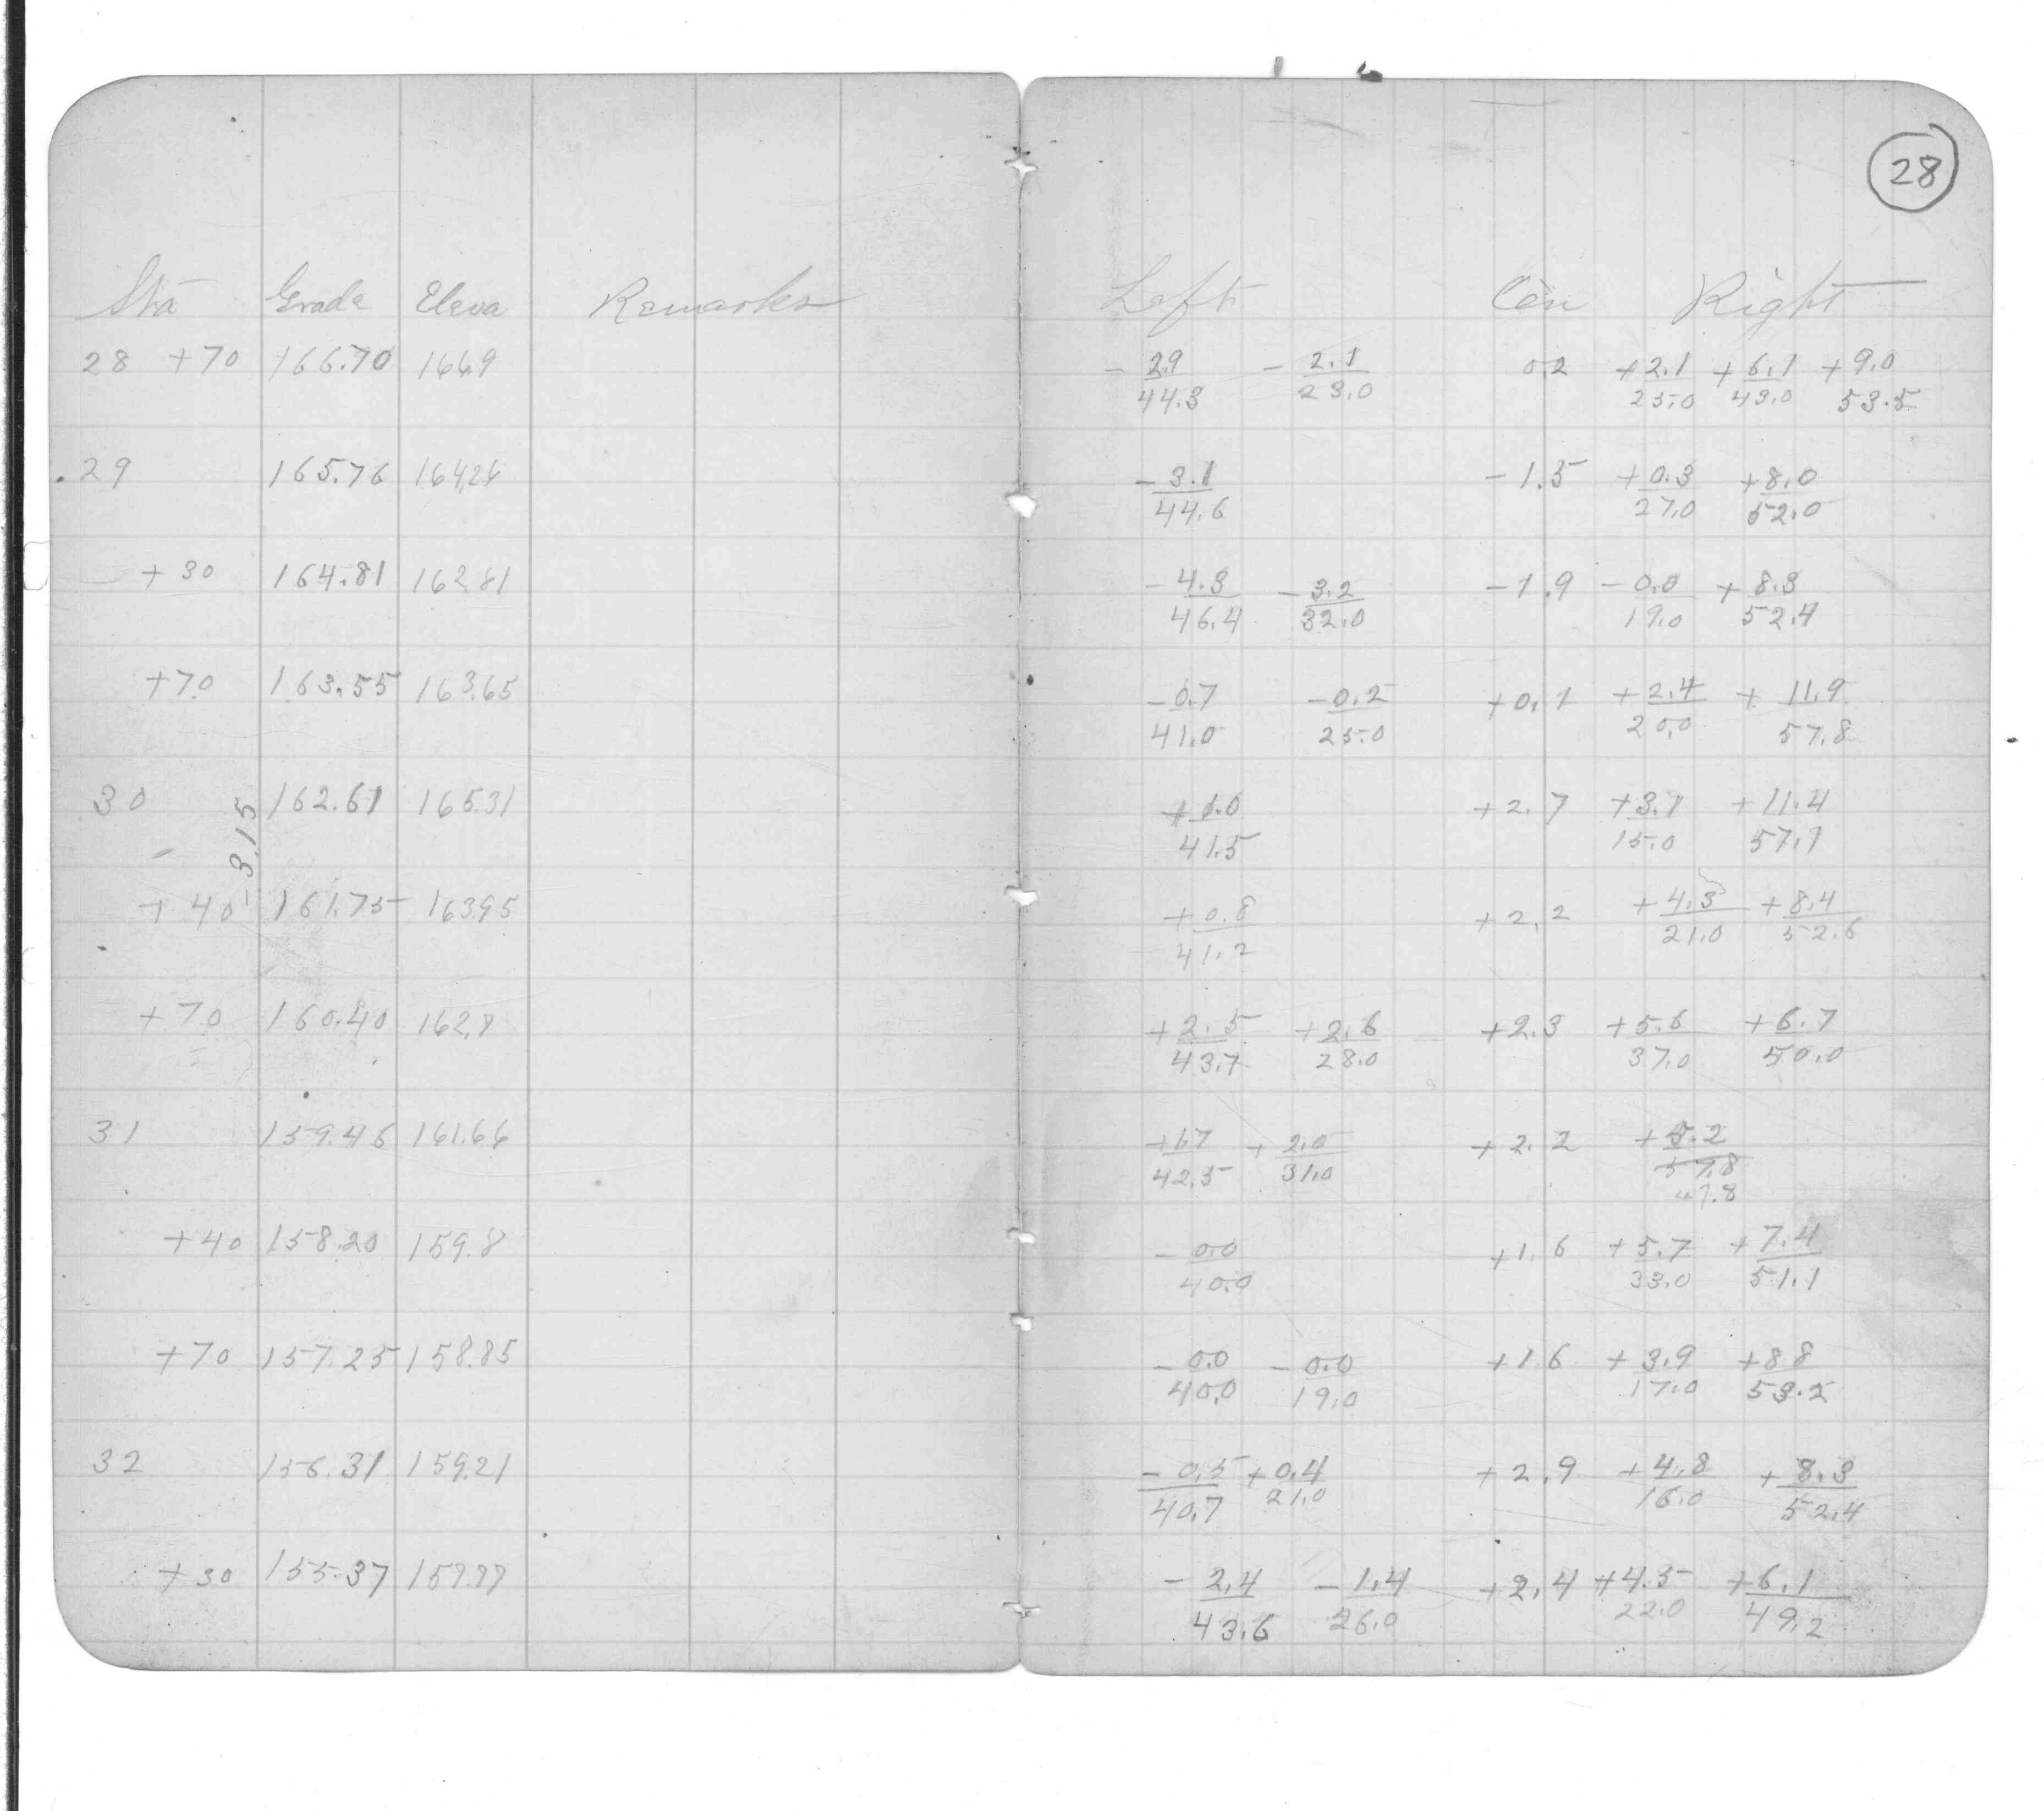 28
Sta Grade Eleva Remarks Left Cen Right
28 +70 166.70 166.9 - 2.9/44.3 - 2.1/23.0 0.2 +2.1/25.0 +6.1/43.0 +9.0/53.5
29 165.76 164.26 - 3.1/44.6 -1.5 +0.3/27.0 +8.0/52.0
+30 164.81 162.81 - 4.3/46.4 - 3.2/32.0 -1.9 -0.0/19.0 +8.3/52.4
+70 163.55 163.65 -0.7/41.0 -0.2/25.0 +0.1 +2.4/20.0 + 11.9/57.8
30 162.61 165.31 +1.0/41.5 +2.7 +3.1/15.0 +11.4/57.1
3.15
+40 161.75 163.95 +0.8/41.2 +2.2 +4.3/21.0 +8.4/52.6
+70 160.40 162.7 +2.5/43.7 +2.6/28.0 +2.3 +5.6/37.0 +6.7/50.0
31 159.46 161.66 +1.7/42.5 +2.0/31.0 +2.2 +5.2/57.8
47.8
+40 158.20 159.8 -0.0/40.0 +1.6 +5.7/33.0 +7.4/51.1
+70 157.25 158.85 -0.0/40.0 -0.0/19.0 +1.6 +3.9/17.0 +8.8/53.2
32 156.31 159.21 -0.5/40.7 +0.4/21.0 +2.9 +4.8/16.0 +8.3/52.4
+30 155.37 157.77 - 2.4/43.6 -1.4/26.0 +2.4 +4.5/22.0 +6.1/49.2